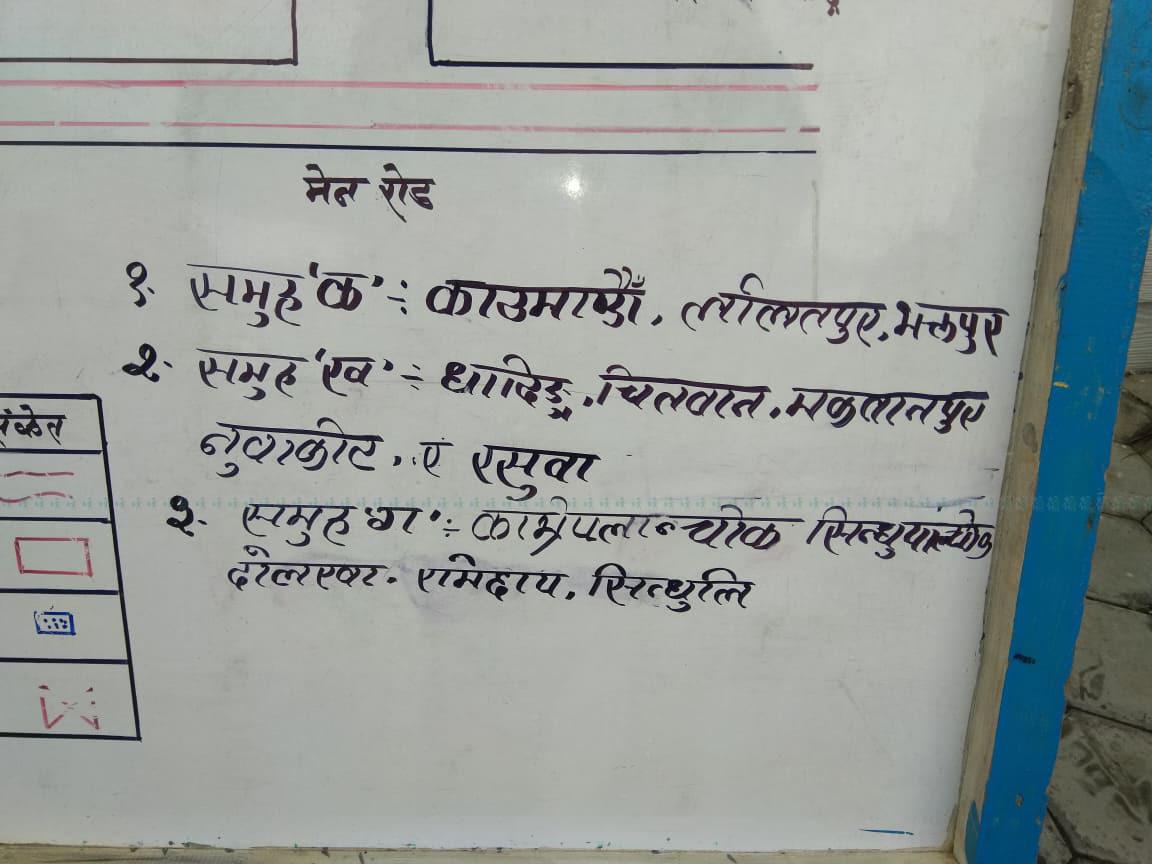 मेन रोड
१. समुह 'क' ÷ काठमाण्डौँ, ललितपुर, भक्तपुर
२. समुह 'ख' ÷ धादिङ्ग, चितवन, मकवानपुर
नुवाकोट, एं रसुवा
३. समुह 'ग' ÷ काभ्रेपलान्चोक सिन्धुपाल्चोक
दोलखा. रामेछाप, सिन्धुलि
संकेत